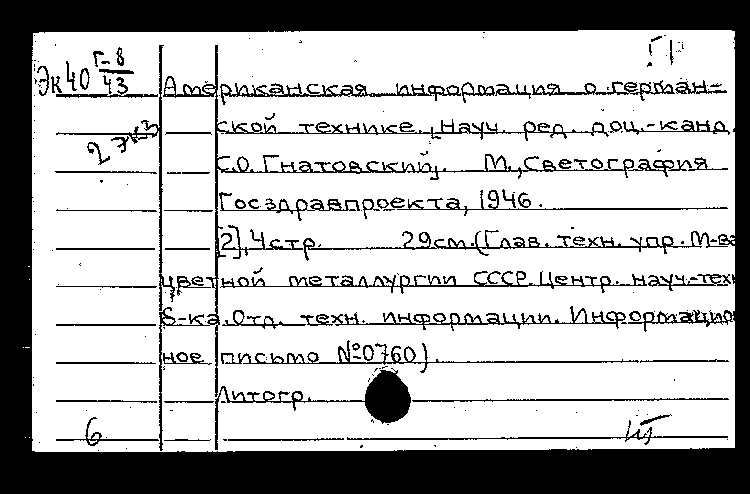 Эк40 Г-8/43
2 экз
Американская информация о герман-
ской технике. [Науч. ред. доц.-канд.
С.О. Гнатовский]. М., Светография
Госздравпроекта, 1946.
[2], 4 стр. 29см. (Глав. техн. упр. М-ва
цветной металлургии СССР. Центр. науч.-техн
б-ка. Отд. техн. информации. Информацио
ное письмо №0760).
Литогр.
6